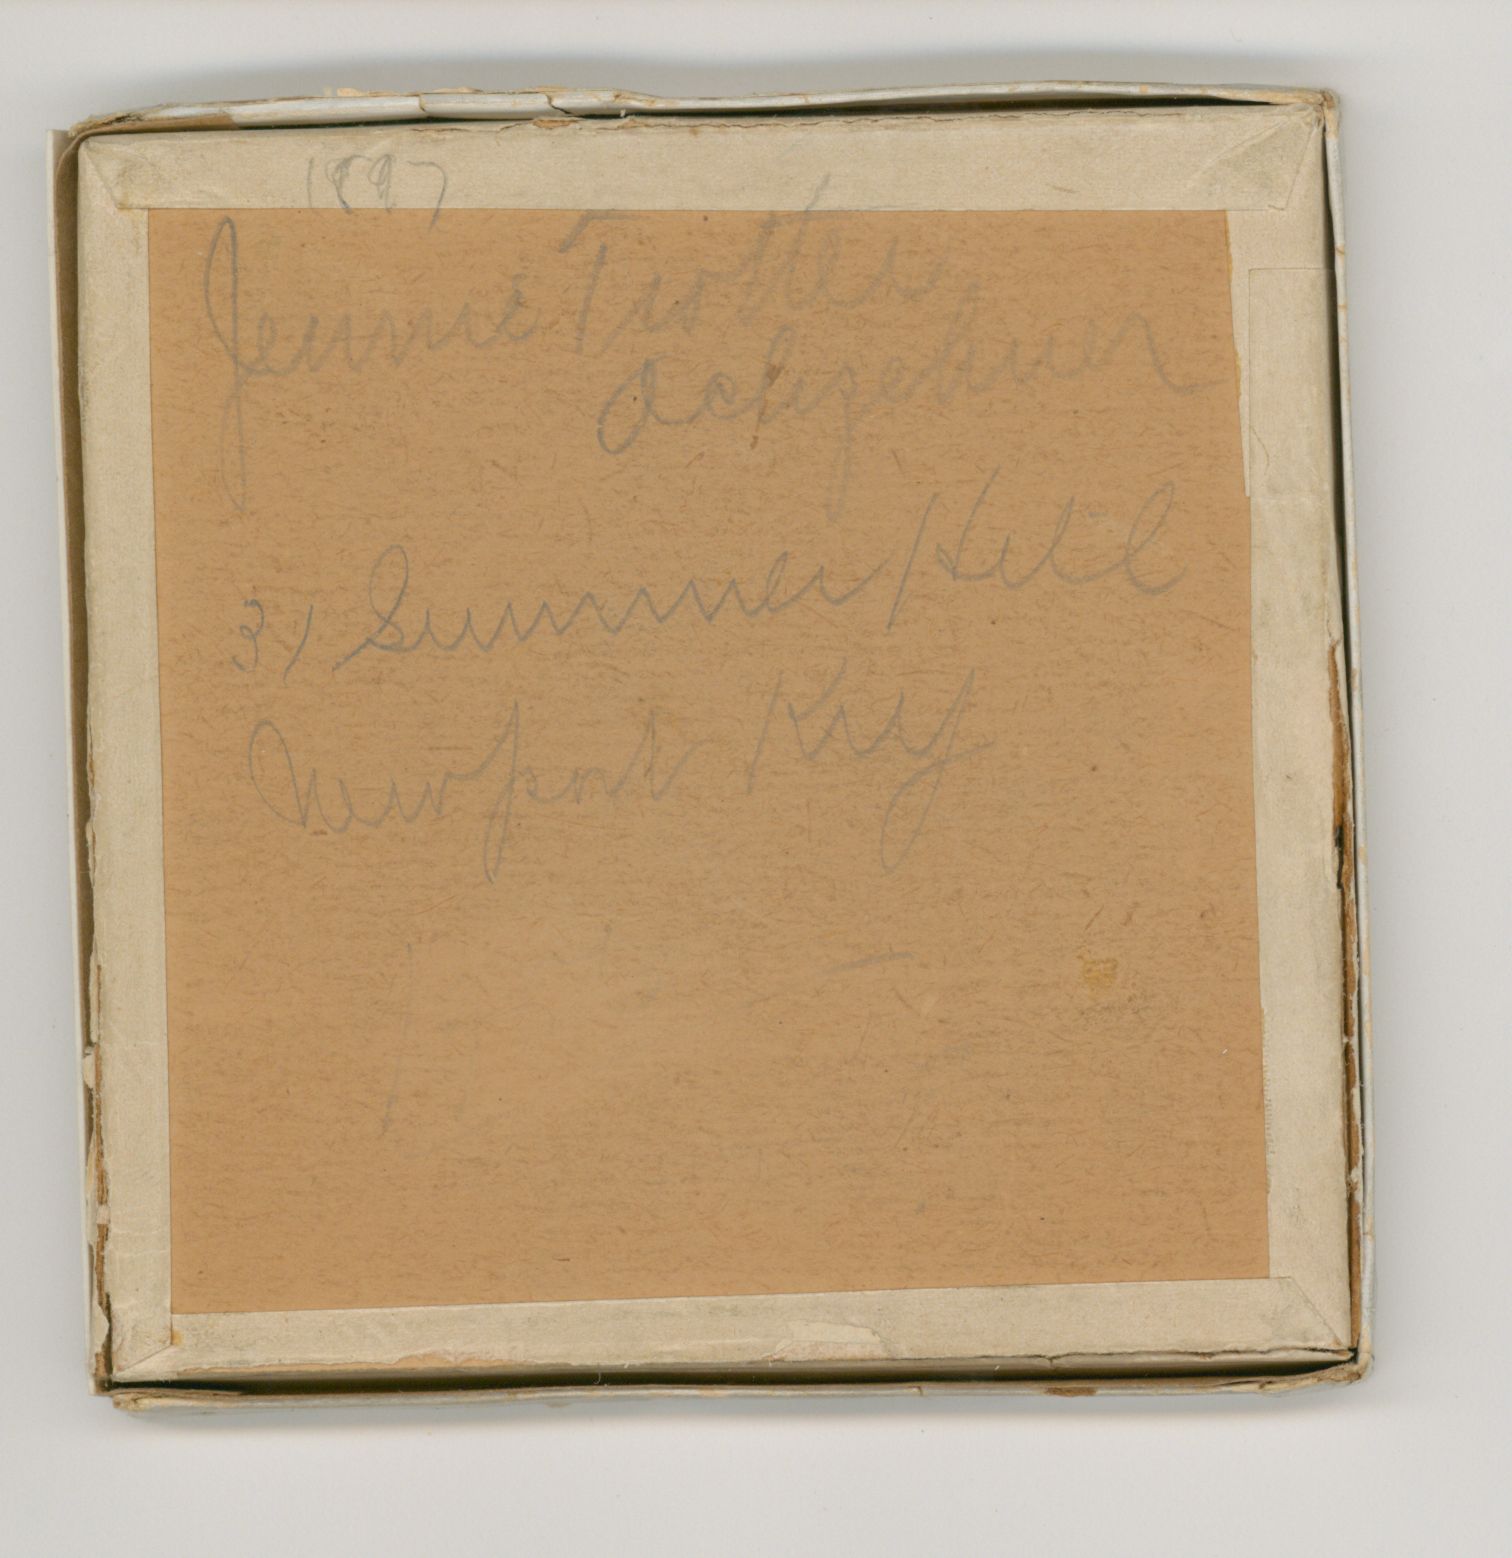 1897
Jennie Trotter
Achgehuer
31 Summer Hill
Newport Ky